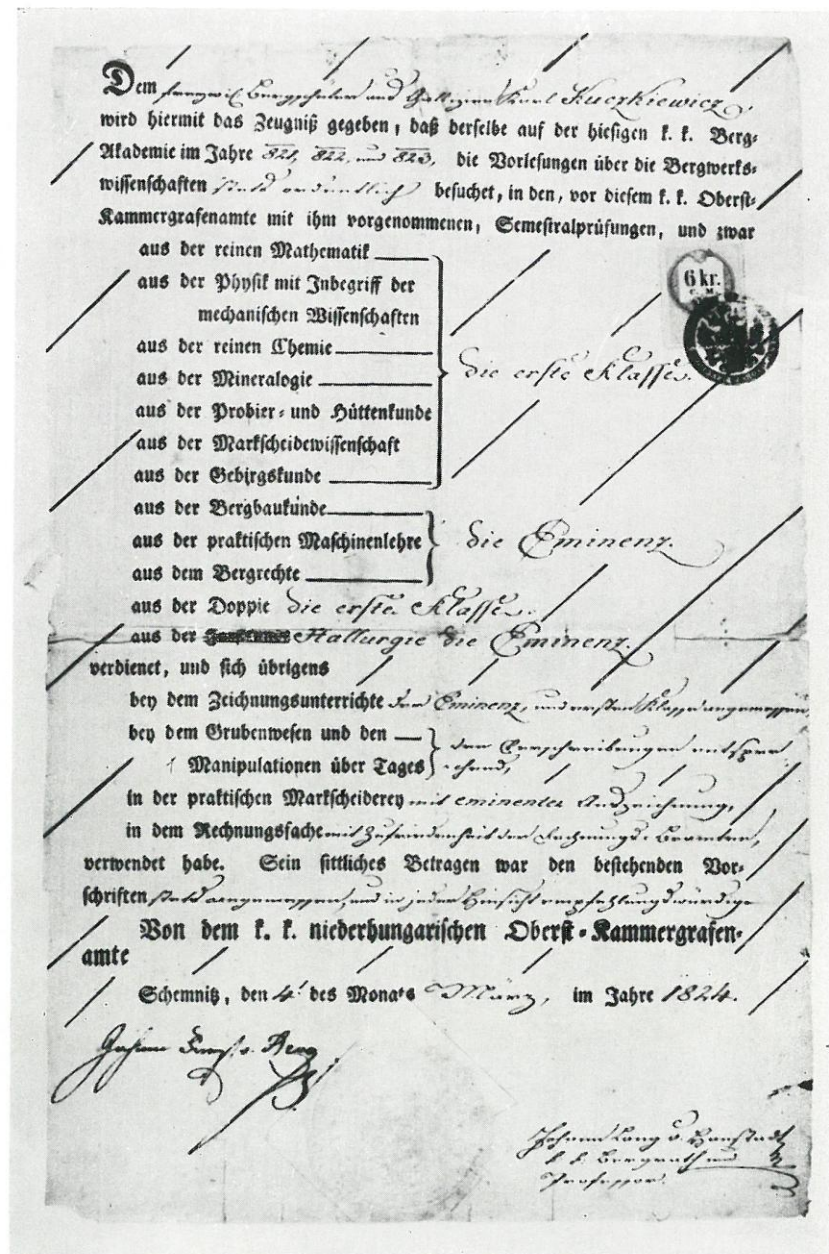 Dem Bergschüler und Karl Kuczkiewicz,
wird hiermit das Zeugniß gegeben, daß derselbe auf der hiesigen k. k. Berg-
Akademie im Jahre 821, 822, und 823, die Vorlesungen über die Bergwerks-
wissenschaften stets ordentlich besuchet, in den, vor diesem k. k. Oberst-
Kammergrafenamte mit ihm vorgenommenen, Semestralprüfungen, und zwar
aus der reinen Mathematik
aus der Physik mit Inbegriff der
mechanischen Wissenschaften
6 kr.
C. M.
aus der reinen Chemie
aus der Mineralogie
die erste Klasse.
aus der Probier- und Hüttenkunde
aus der Markscheidewissenschaft
aus der Gebirgskunde
aus der Bergbaukunde
aus der praktischen Maschinenlehre
die Eminenz.
aus dem Bergrechte
aus der Doppie die erste Klasse.
aus der Hallurgie die Eminenz.
verdienet, und sich übrigens
bey dem Zeichnungsunterrichte der Eminenz, und ersten Klasse angemessen,
bey dem Grubenwesen und den
Manipulationen über Tages
den Vorschreibungen entspre-
chend,
in der praktischen Markscheiderey mit eminenter Auszeichnung,
in dem Rechnungsfache mit Zufriedenheit der Rechnungs-Beamten,
verwendet habe. Sein sittliches Betragen war den bestehenden Vor-
schriften stets angemessen, und in jeder Hinsicht empfehlungswürdig.
Von dem k. k. niederhungarischen Oberst-Kammergrafen-
amte
Schemnitz, den 4 des Monats März, im Jahre 1824.
Johann
Johann Lang v. Hanstadt
k. k. Bergrath und
Professor.